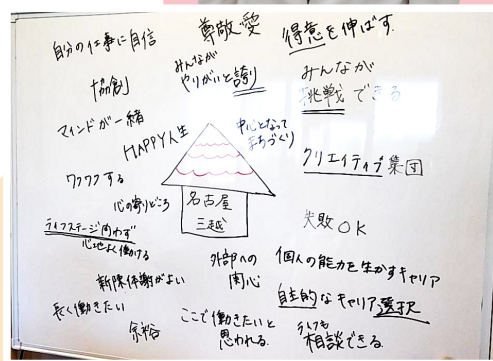 自分の仕事に自信
尊敬・愛
得意を伸ばす.
協創
みんなが
やりがいと誇り
みんなが
挑戦できる
マインドが一緒
HAPPY人生
中心となって
まちづくり
クリエイティブ集団
ワクワクする
心の寄りどころ
名古屋
三越
失敗OK
ライフステージ問わず
心地よく働ける
外部への
関心
個人の能力を生かすキャリア
新陳代謝がよい
自主的なキャリア選択
長く働きたい
余裕
ここで働きたいと
思われる.
相談できる.